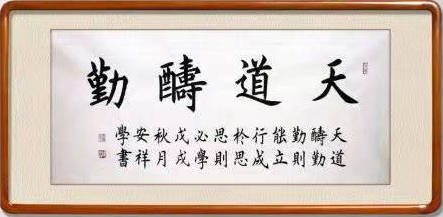 天道醻勤
天道
醻勤
勤則
能立
行成
於思
思則
必學
戊戌
秋月
安祥
學書